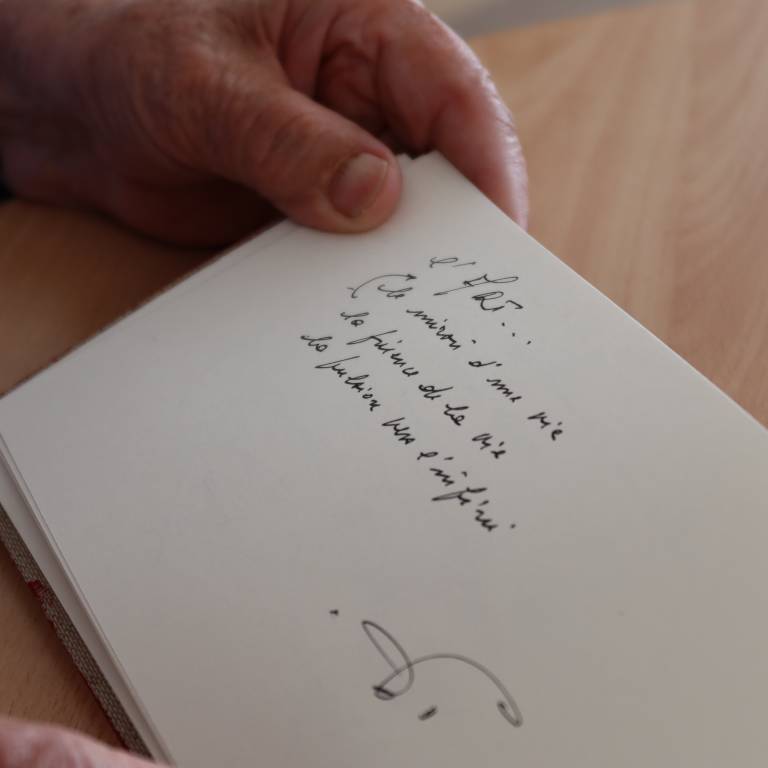 l'Art...
le miroir d'une vie
la science de la vie
la pulsion vers l'infini